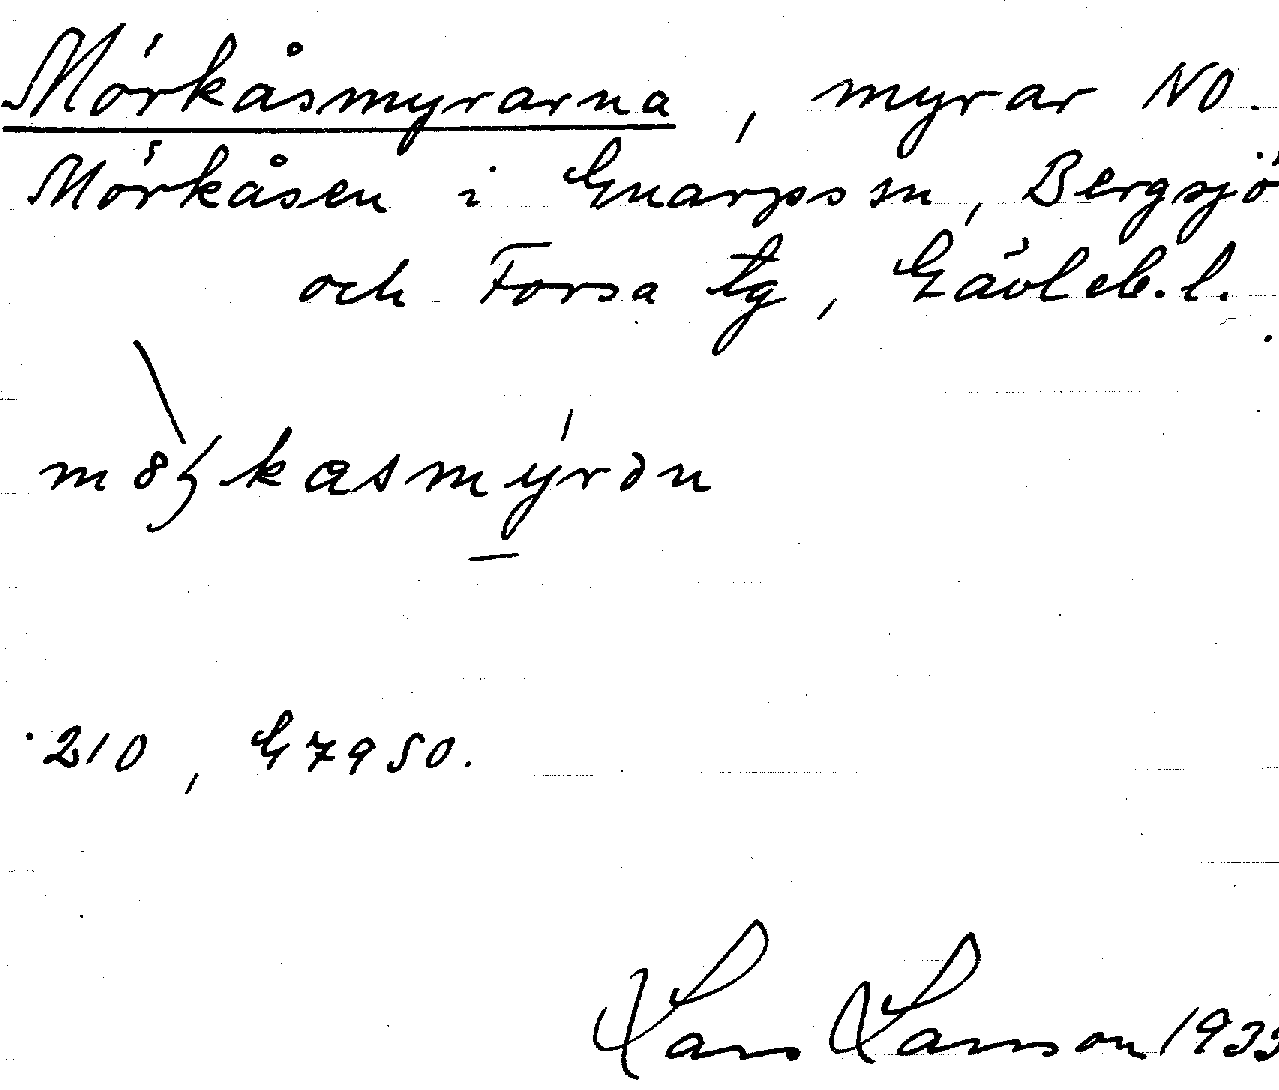 Mörkåsmyrarna, myrar NO.
Mörkåsen i Gnarps sn, Bergsjö
och Forsa tg, Gävleb. l.
210, G7950.
Lars Larsson 1933